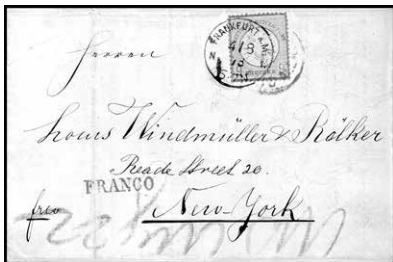 FRANKFURT A.M.
4/8
73
Herren
Louis Windmüller & Rölker
Reade Street 20.
FRANCO
frco
New-York